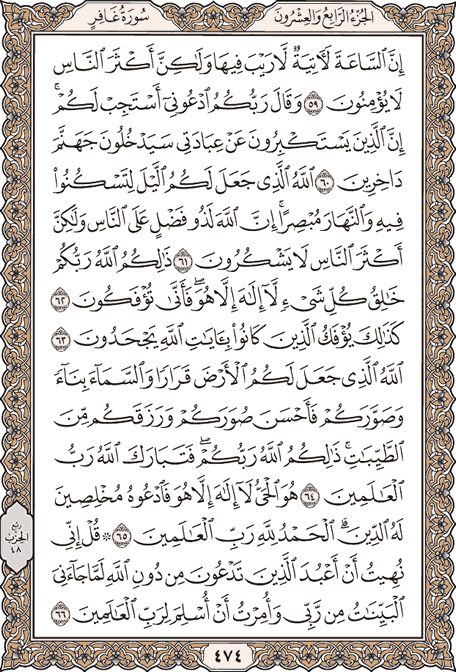 الجُزْءُ الرَّابِعُ وَالعِشْرُونَ سُورَةُ غَافِرٍ
إِنَّ ٱلسَّاعَةَ لَأٓتِيَةٌ لَّا رَيْبَ فِيهَا وَلَٰكِنَّ أَكْثَرَ ٱلنَّاسِ
لَا يُؤْمِنُونَ ٥٩ وَقَالَ رَبُّكُمُ ٱدْعُونِىٓ أَسْتَجِبْ لَكُمْۚ
إِنَّ ٱلَّذِينَ يَسْتَكْبِرُونَ عَنْ عِبَادَتِى سَيَدْخُلُونَ جَهَنَّمَ
دَاخِرِينَ ٦٠ ٱللَّهُ ٱلَّذِى جَعَلَ لَكُمُ ٱلَّيْلَ لِتَسْكُنُوا۟
فِيهِ وَٱلنَّهَارَ مُبْصِرًاۚ إِنَّ ٱللَّهَ لَذُو فَضْلٍ عَلَى ٱلنَّاسِ وَلَٰكِنَّ
أَكْثَرَ ٱلنَّاسِ لَا يَشْكُرُونَ ٦١ ذَٰلِكُمُ ٱللَّهُ رَبُّكُمْ
خَٰلِقُ كُلِّ شَىْءٍ لَّآ إِلَٰهَ إِلَّا هُوَۖ فَأَنَّىٰ تُؤْفَكُونَ ٦٢
كَذَٰلِكَ يُؤْفَكُ ٱلَّذِينَ كَانُوا۟ بِـَٔايَٰتِ ٱللَّهِ يَجْحَدُونَ ٦٣
ٱللَّهُ ٱلَّذِى جَعَلَ لَكُمُ ٱلْأَرْضَ قَرَارًا وَٱلسَّمَآءَ بِنَآءً
وَصَوَّرَكُمْ فَأَحْسَنَ صُوَرَكُمْ وَرَزَقَكُم مِّنَ
ٱلطَّيِّبَٰتِۚ ذَٰلِكُمُ ٱللَّهُ رَبُّكُمْۖ فَتَبَارَكَ ٱللَّهُ رَبُّ
ٱلْعَٰلَمِينَ ٦٤ هُوَ ٱلْحَىُّ لَآ إِلَٰهَ إِلَّا هُوَ فَٱدْعُوهُ مُخْلِصِينَ
لَهُ ٱلدِّينَۗ ٱلْحَمْدُ لِلَّهِ رَبِّ ٱلْعَٰلَمِينَ ٦٥ ۞ قُلْ إِنِّى
نُهِيتُ أَنْ أَعْبُدَ ٱلَّذِينَ تَدْعُونَ مِن دُونِ ٱللَّهِ لَمَّا جَآءَنِىَ
ٱلْبَيِّنَٰتُ مِن رَّبِّى وَأُمِرْتُ أَنْ أُسْلِمَ لِرَبِّ ٱلْعَٰلَمِينَ ٦٦
ربع
الحزب
٤٨
٤٧٤